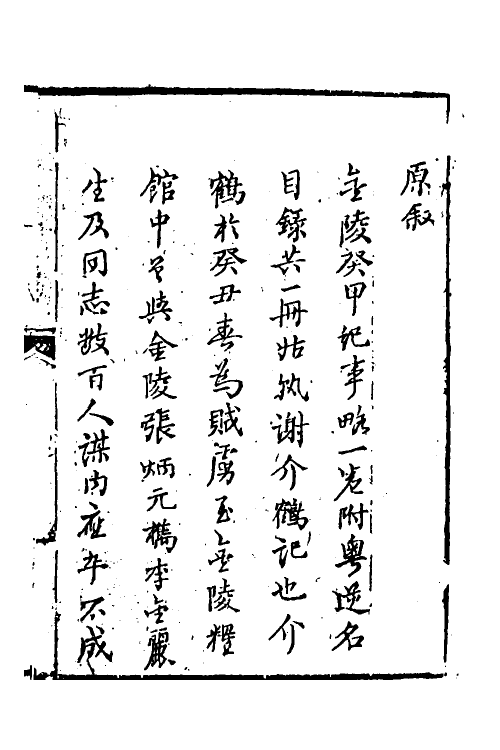 原叙
金陵癸甲紀事略一卷附粵逆名
目錄共一冊姑孰謝介鶴記也介
鶴於癸丑春為賊虜至金陵糧
館中曾與金陵張炳元檇李金麗
生及同志數百人謀內應卒不成